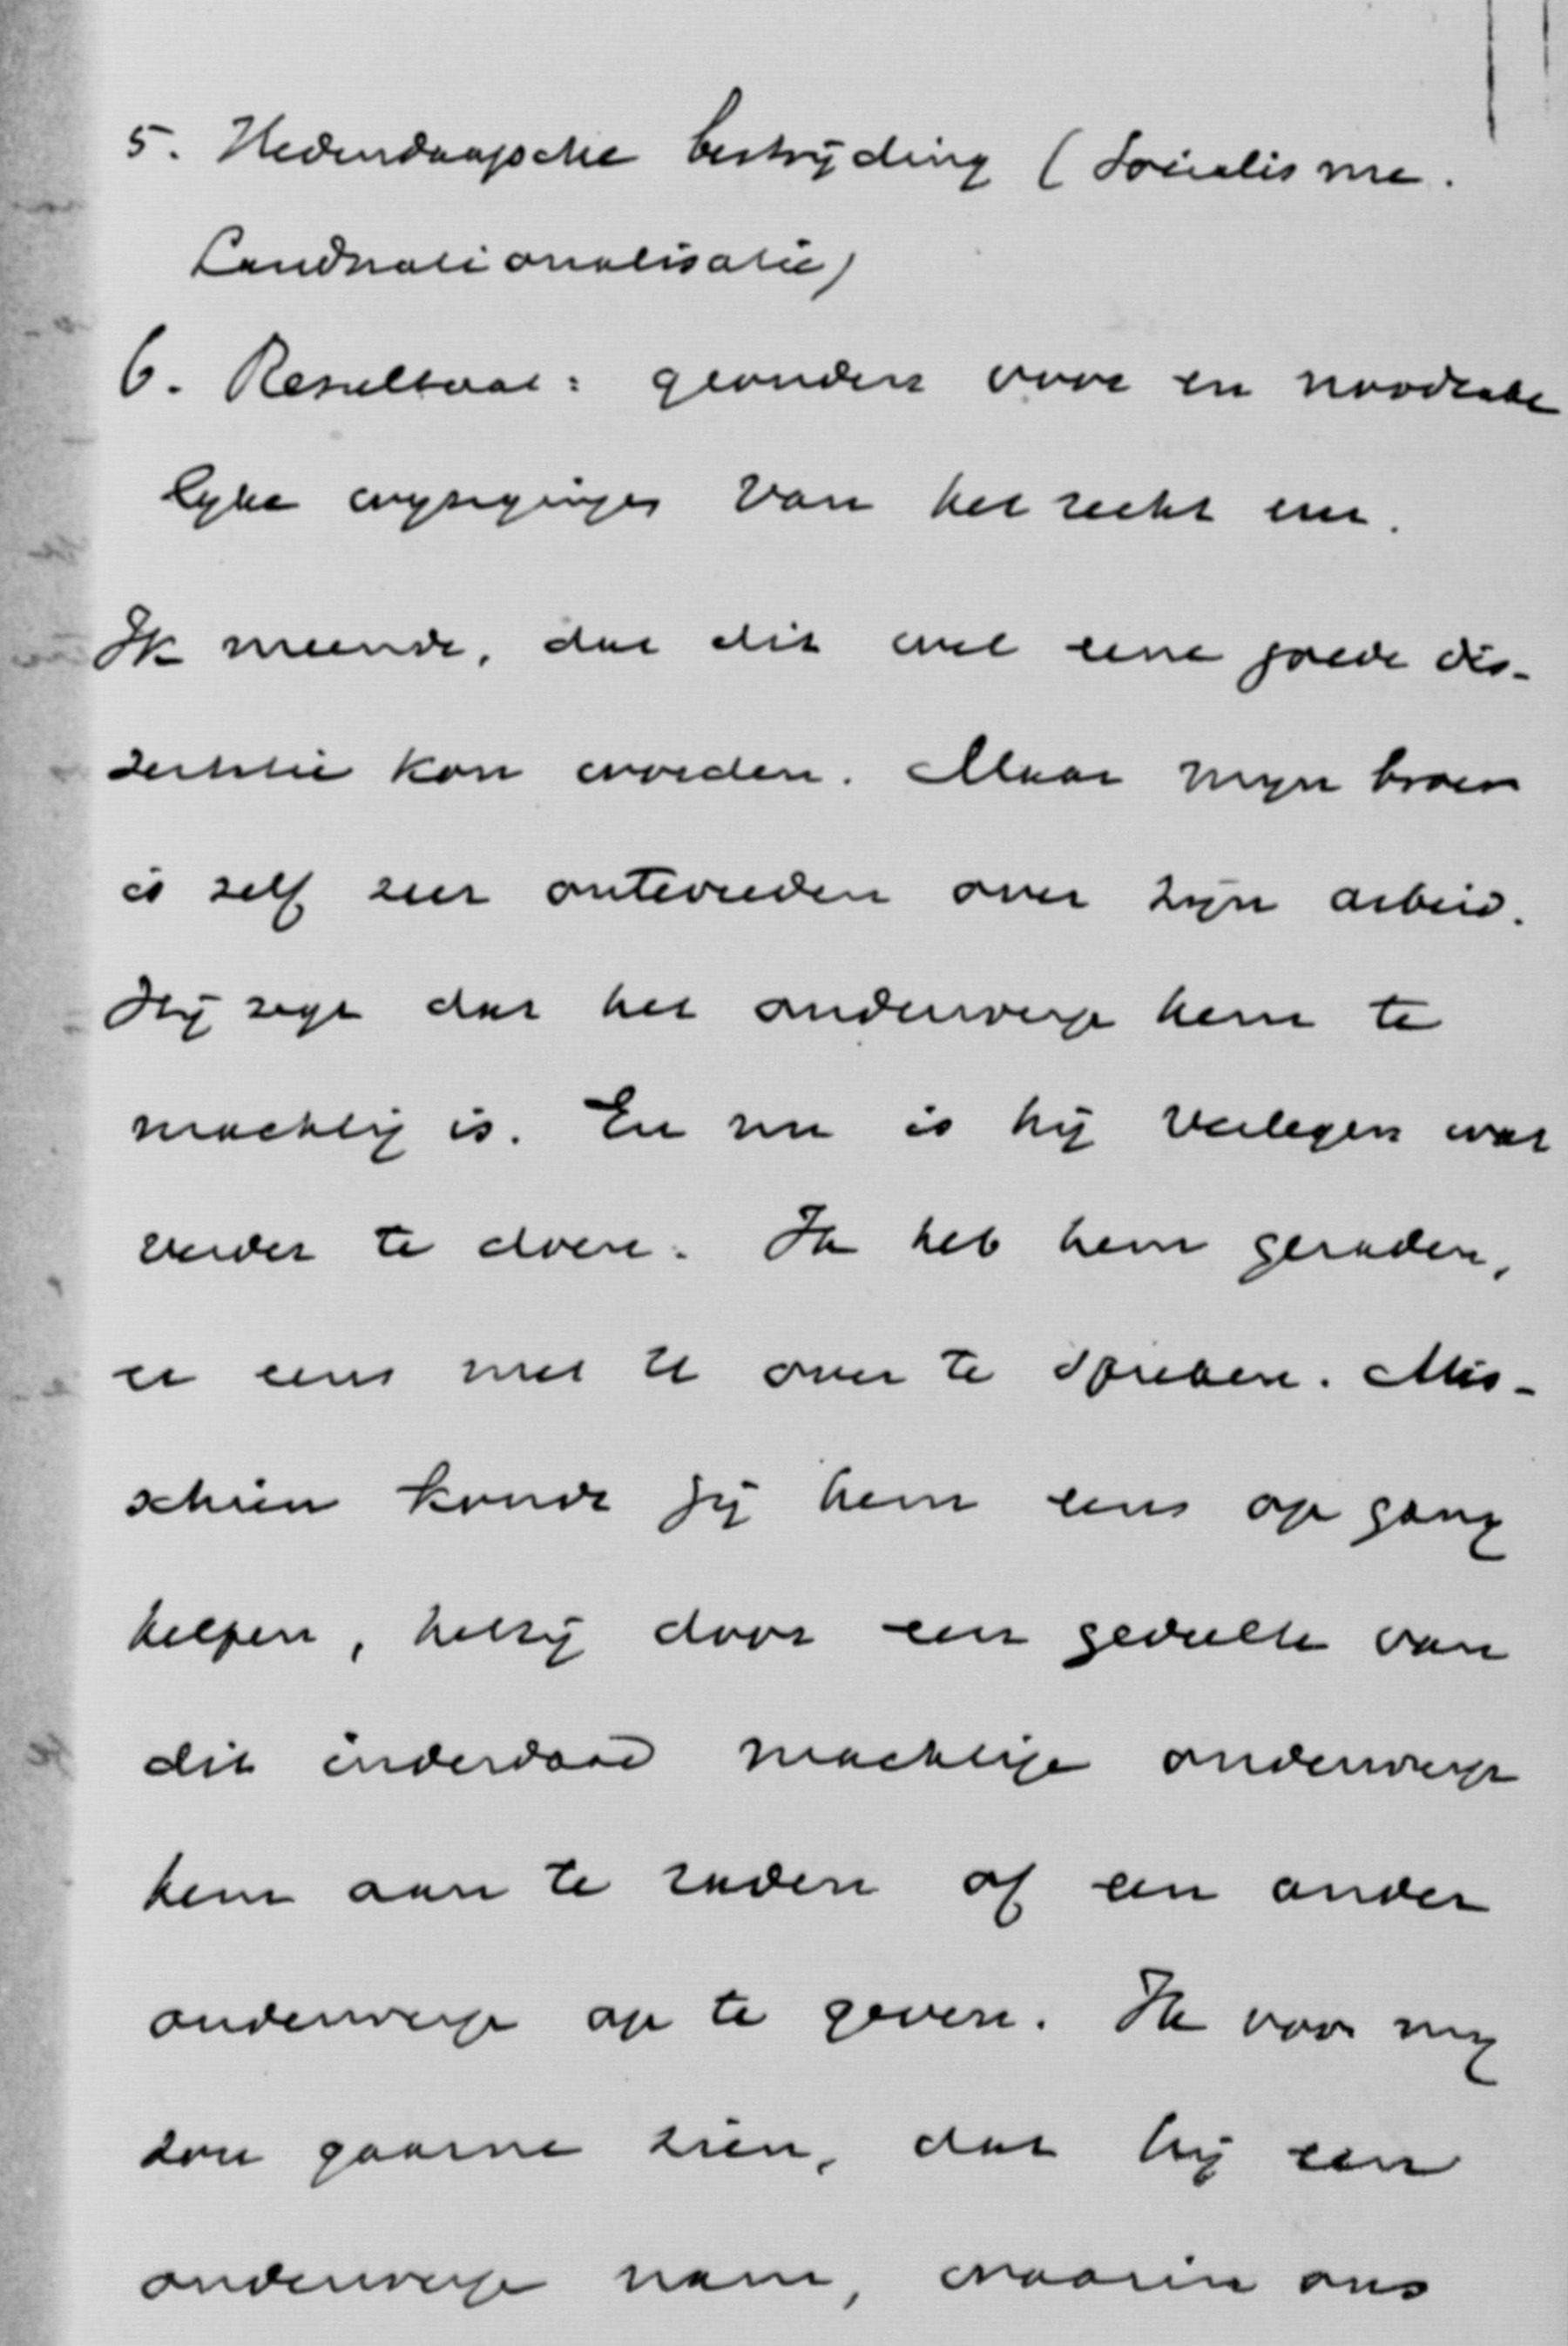 5. Hedendaagsche bestrijding (Socialisme.
Landnationalisatie)
6. Resultaat: gronden voor en noodzake
lyke wyzigingen van het recht enz.
Ik meende, dat dit wel eene goede dis-
sertatie kon worden. Maar myn broer
is zelf zeer ontevreden over zyn arbeid.
Hij zegt dat het onderwerp hem te
machtig is. En nu is hij verlegen wat
verder te doen. Ik heb hem geraden,
er eens met U over te spreken. Mis-
schien konde gij hem eens op gang
helpen, hetzij door een gedeelte van
dit inderdaad machtige onderwerp
hem aan te raden of een ander
onderwerp op te geven. Ik voor my
zou gaarne zien, dat hij een
onderwerp nam, waarin ons